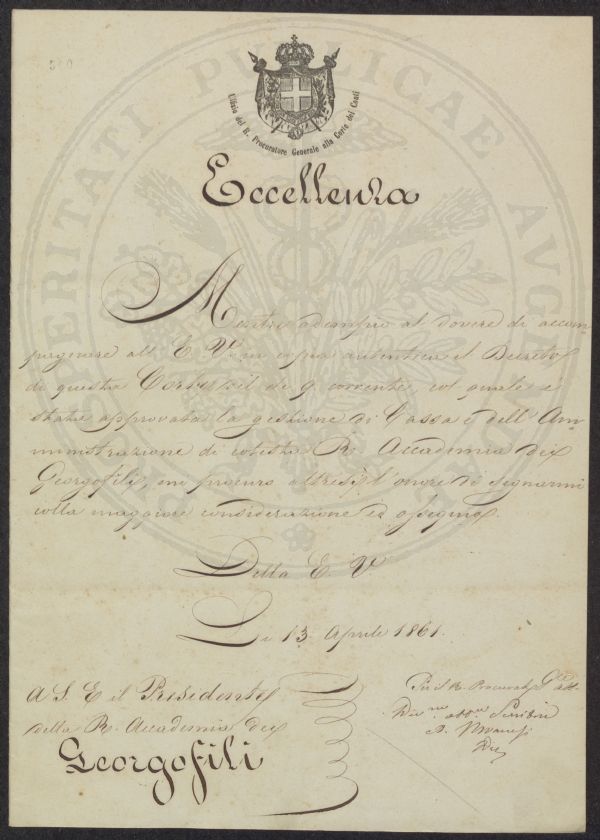 Uffizio del R. Procuratore Generale alla Corte dei Conti
Eccellenza
Mentre adempio al dovere di accom-
pagnare all' E. V. in copia autentica il Decreto
di questa Corte del dì 9 corrente col quale è
stata approvata la gestione di Cassa e dell' Am-
ministrazione di cotesta R. Accademia dei
Georgofili, mi procuro altresì l'onore di segnarmi
colla maggiore considerazione ed ossequio.
Della E. V.
Li 13 Aprile 1861.
A S. E il Presidente
della R. Accademia dei
Georgofili
Per il R. Procurat. Gle
PROSPERITATI PUBLICAE AUGENDAE